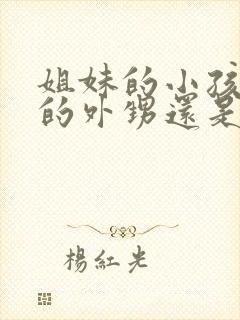 姐妹的小孩
的外甥還是
楊紅光